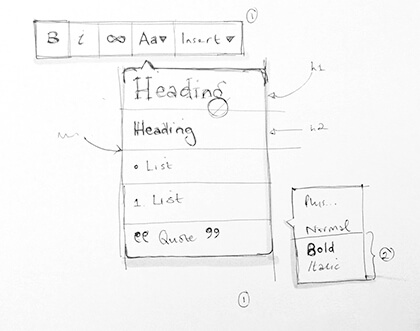 ①
B i ∞ Aa▾ Insert ▾
Heading
h1
Heading
h2
• List
1 List
❝ Quote ❞
Normal
Bold
Italic
②
①